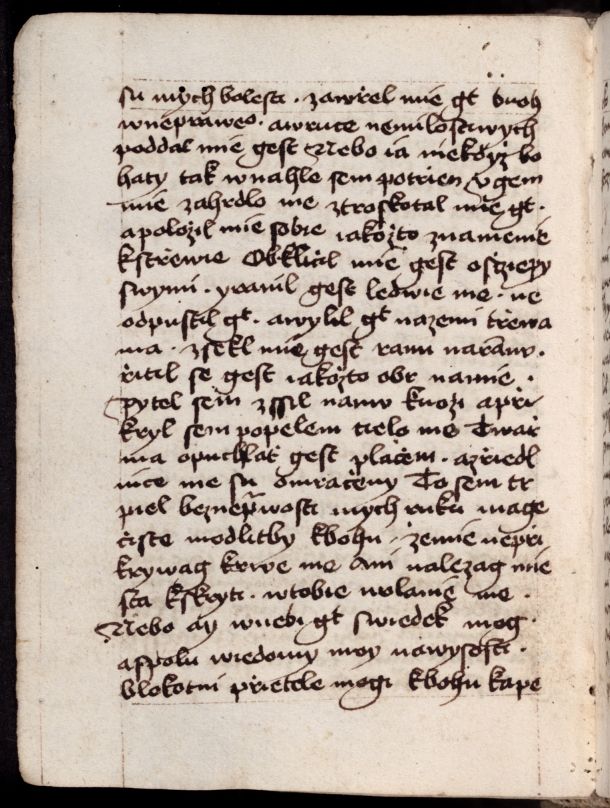 su mých bolesti · zawřel mie gt buoh
wnepraweo · awruce nemilostiwých
poddal mie gest Nebo ia niekdyż bo
hatý tak wnahle sem potřien y gem
mie zahrdlo me ztroskotal mie gt ·
apoložil mie sobie iakožto znamenie
kstřewie Obklíčil mie gest osczepy
swymi · yranil gest ledwie me · ne
odpustil gt · awylil gt nazemi třewa
ma · zsekl mie gest ranu naranu ·
řitil se gest iakožto obr namie ·
Pytel sem zssil namu kuoži apři
kryl sem popelem tielo me Twář
ma opuchlať gest pláčem · azřiedl
nice me su zmračeny To sem tr
piel beznepřiwosti mých ruku mage
čiste modlitby kbohu · zemie nepři
kryway krwe me Ani nalezay mie
sta kskryti · wtobie wolanie me ·
Nebo ay wnebi gt swiedek moy ·
aspolu wiedomy moy nawysosti ·
blokotni přietele mogi kbohu kape